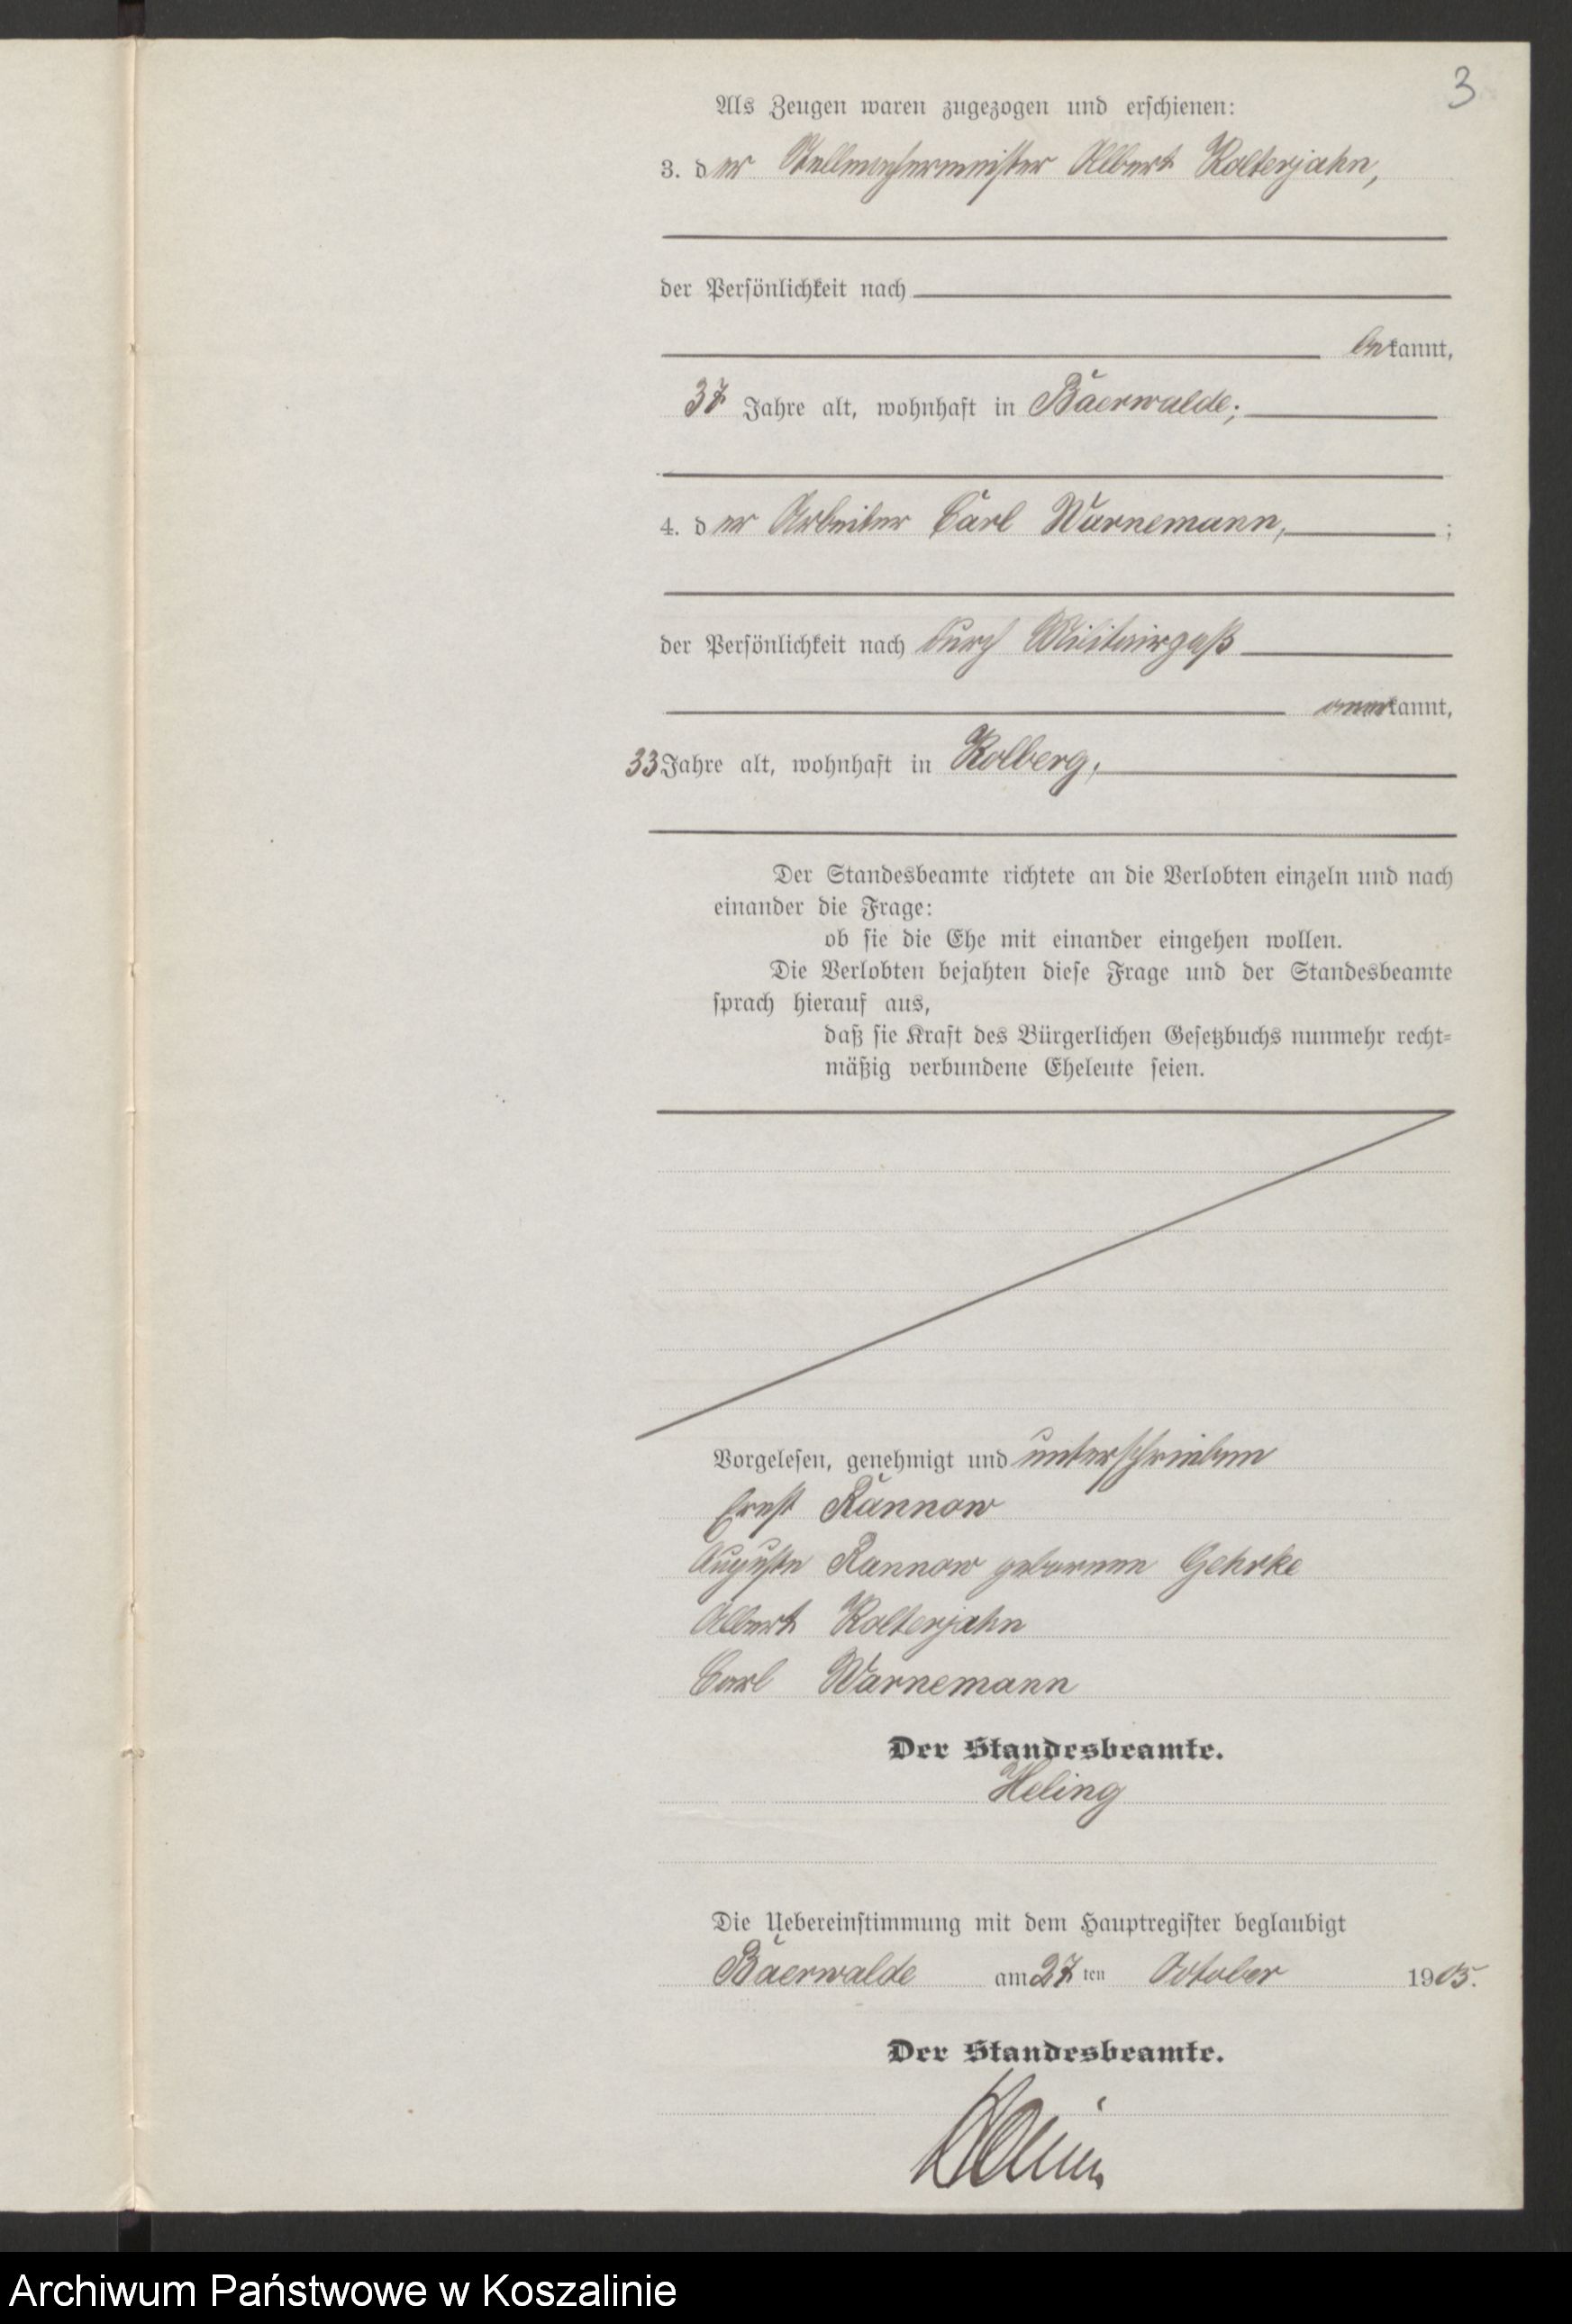 3
Als Zeugen waren zugezogen und erschienen:
3. der Stellmachermeister Albert Kolterjahn,
der Persönlichkeit nach
bekannt,
37 Jahre alt, wohnhaft in Bäerwalde;
4. der Arbeiter Carl Warnemann, ;
der Persönlichkeit nach durch Militairpaß
anerkannt,
33 Jahre alt, wohnhaft in Kolberg,
Der Standesbeamte richtete an die Verlobten einzeln und nach
einander die Frage:
ob sie die Ehe mit einander eingehen wollen.
Die Verlobten bejahten diese Frage und der Standesbeamte
sprach hierauf aus,
daß sie Kraft des Bürgerlichen Gesetzbuchs nunmehr recht-
mäßig verbundene Eheleute seien.
Vorgelesen, genehmigt und unterschrieben
Ernst Rannow
Auguste Rannow geborene Gehrke
Albert Kolterjahn
Carl Warnemann
Der Standesbeamte.
Heling
Die Uebereinstimmung mit dem Hauptregister beglaubigt
Bäerwalde am 27 ten October 1905.
Der Standesbeamte.
Archiwum Państwowe w Koszalinie